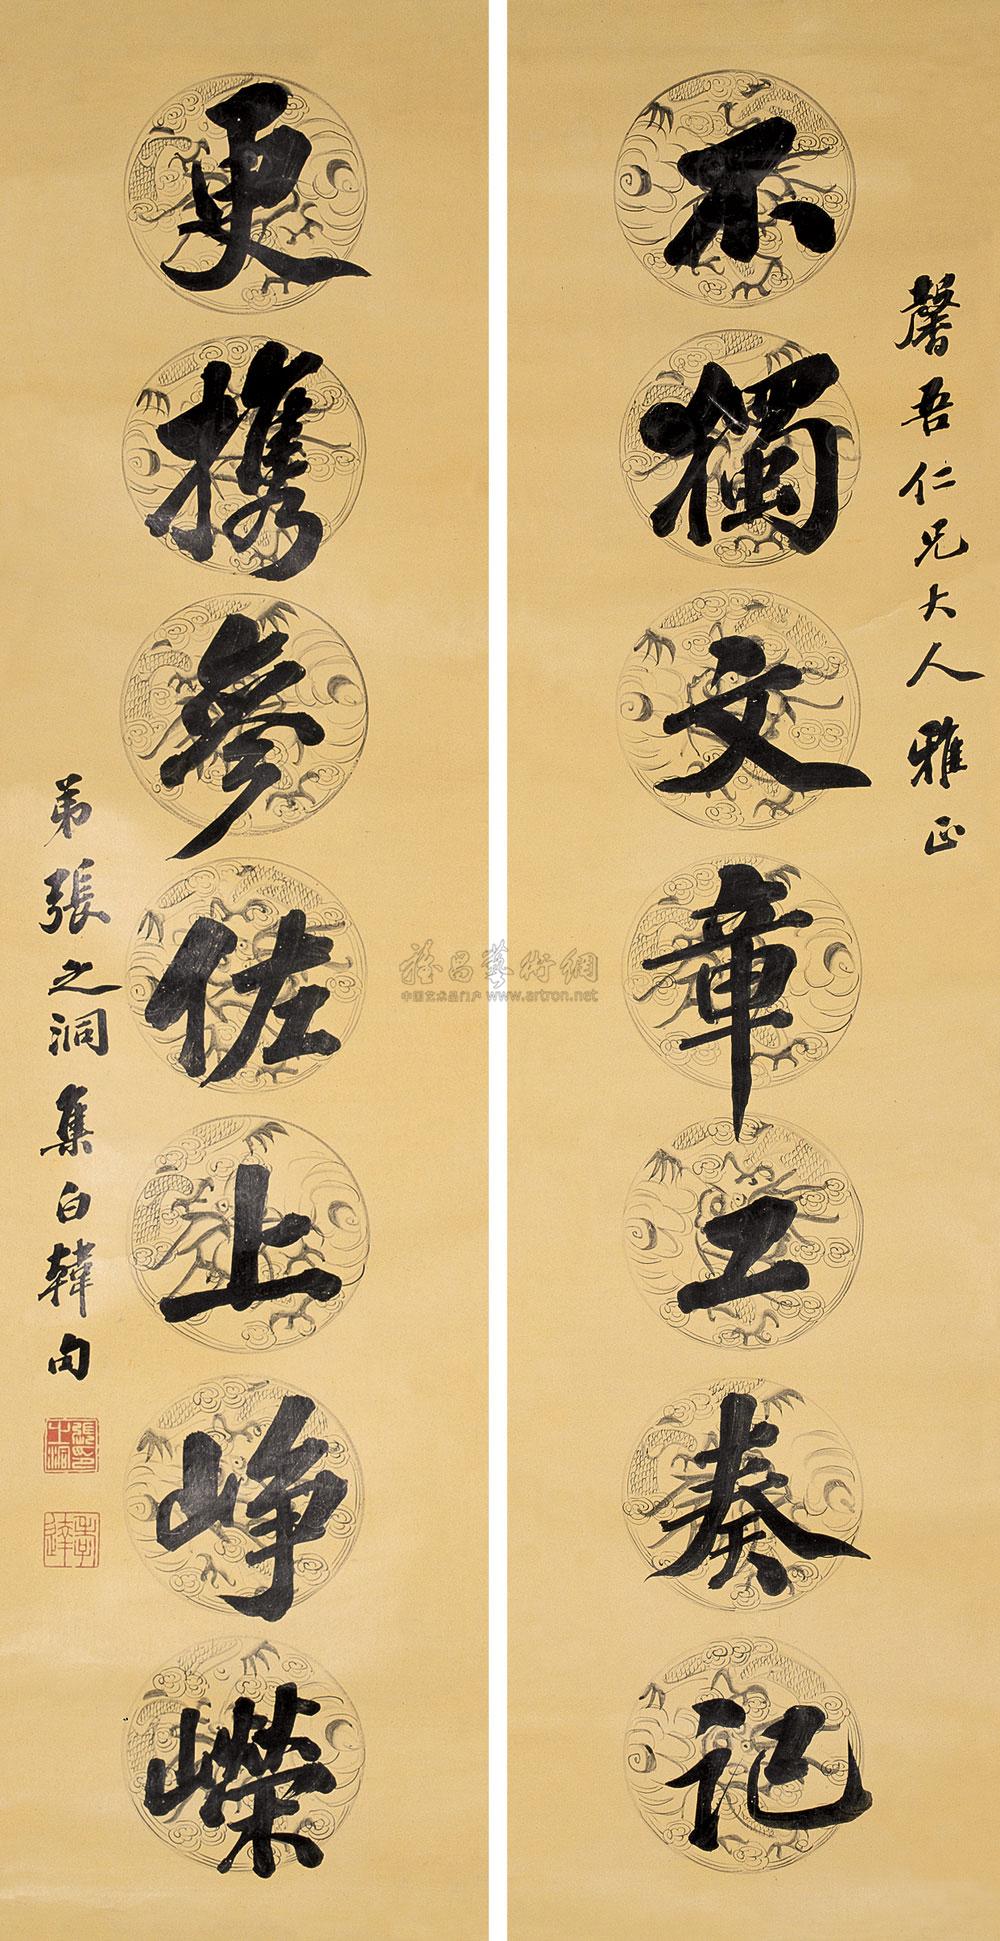 馨吾仁兄大人雅正
不獨文章工奏記
更携參佐上崢嶸
弟張之洞集白韓句
雅昌藝術網
中国艺术品门户 www.artron.net